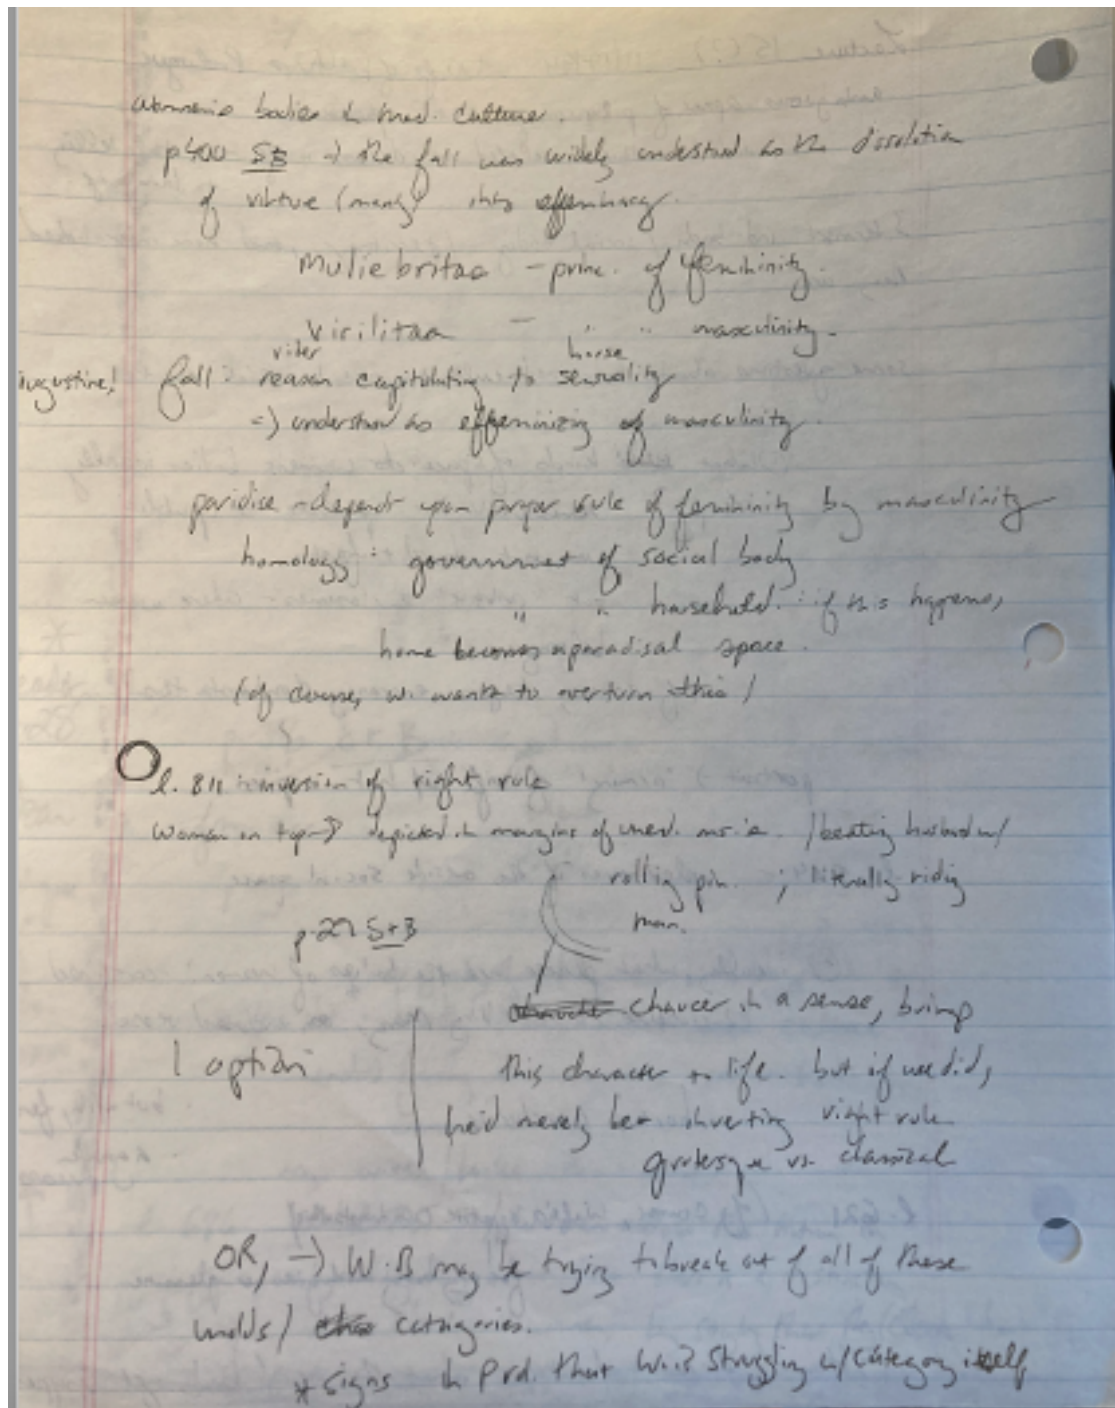 women's bodies in med. culture.
p400 SB → the fall was widely understood as the dissolution
of virtue (manly) into effeminacy.
Muliebritas - princ. of femininity.
Virilitas - " " masculinity.
rider horse
Augustine! fall: reason capitulating to sensuality
=> understood as effeminizing of masculinity.
paridise - depends upon proper rule of femininity by masculinity
homology: government of social body
" " household. : if this happens,
home becomes a paradisal space.
(of course, w. wants to overturn this)
l. 811 inversion of right rule
Woman on top → depicted in margins of med. ms.'s. /beating husband w/
rolling pin. ; literally riding
man.
p.27 S+B
chaucer in a sense, brings
1 option this character to life. but if we did,
he'd merely be inverting right rule
grotesque vs. classical
OR, → W.B may be trying to break out of all of these
molds/ categories.
* Signs in Prol. that W. is struggling w/category itself